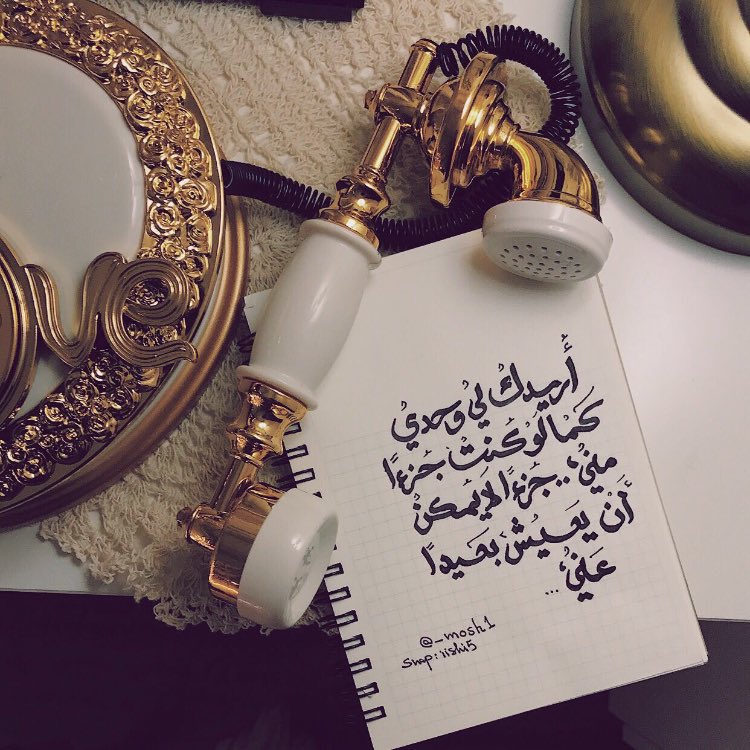 أُريدكُ لي وحدي
كما لو كنت جُزءًا
مني .. جُزءًا لا يمكن
أن يعيش بعيدًا
عني ...
@_mosh1
Snap: iishi5